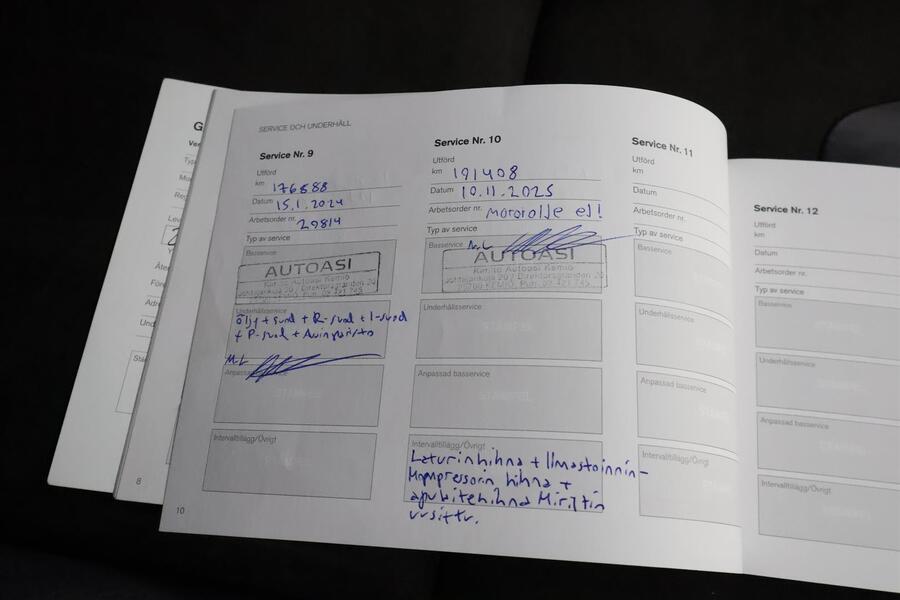 SERVICE OCH UNDERHÅLL
Service Nr. 9
Utförd
km 176888
Datum 15.1.2024
Arbetsorder nr. 29814
Typ av service
Basservice
AUTOASI
Kim:to Autoasi Kemiö
Underhållsservice
öljy + suod + R-suod + I-suod
+ P-suod +
M.L
Anpassad
Intervalltillägg/Övrigt
10
Service Nr. 10
Utförd
km 191408
Datum 10.11.2025
Arbetsorder nr. motorolje ej!
Typ av service
Basservice M.L
AUTOASI
Kim:to Autoasi Kemiö
Underhållsservice
Anpassad basservice
Intervalltillägg/Övrigt
Laturinhihna + Ilmastoinnin-
kompressorin hihna +
apulaitehihna
Service Nr. 11
Utförd
km
Datum
Arbetsorder nr.
Typ av service
Basservice
Underhållsservice
Anpassad basservice
Intervalltillägg/Övrigt
Service Nr. 12
Utförd
km
Datum
Arbetsorder nr.
Typ av service
Basservice
Underhållsservice
Anpassad basservice
Intervalltillägg/Övrigt
8